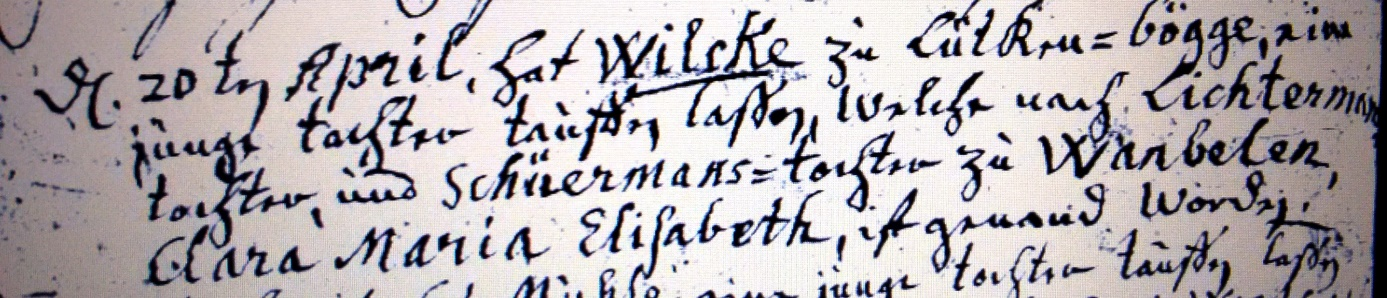 d. 20 ten April, hat Wilcke zu Lütken=bögge, eine
junge tochter tauffen laßen, welche nach Lichterman
tochter, und Schüermans=tochter zu Wanbelen,
Clara Maria Elisabeth, ist genand worden.
Mühle eine junge tochter tauffen laßen